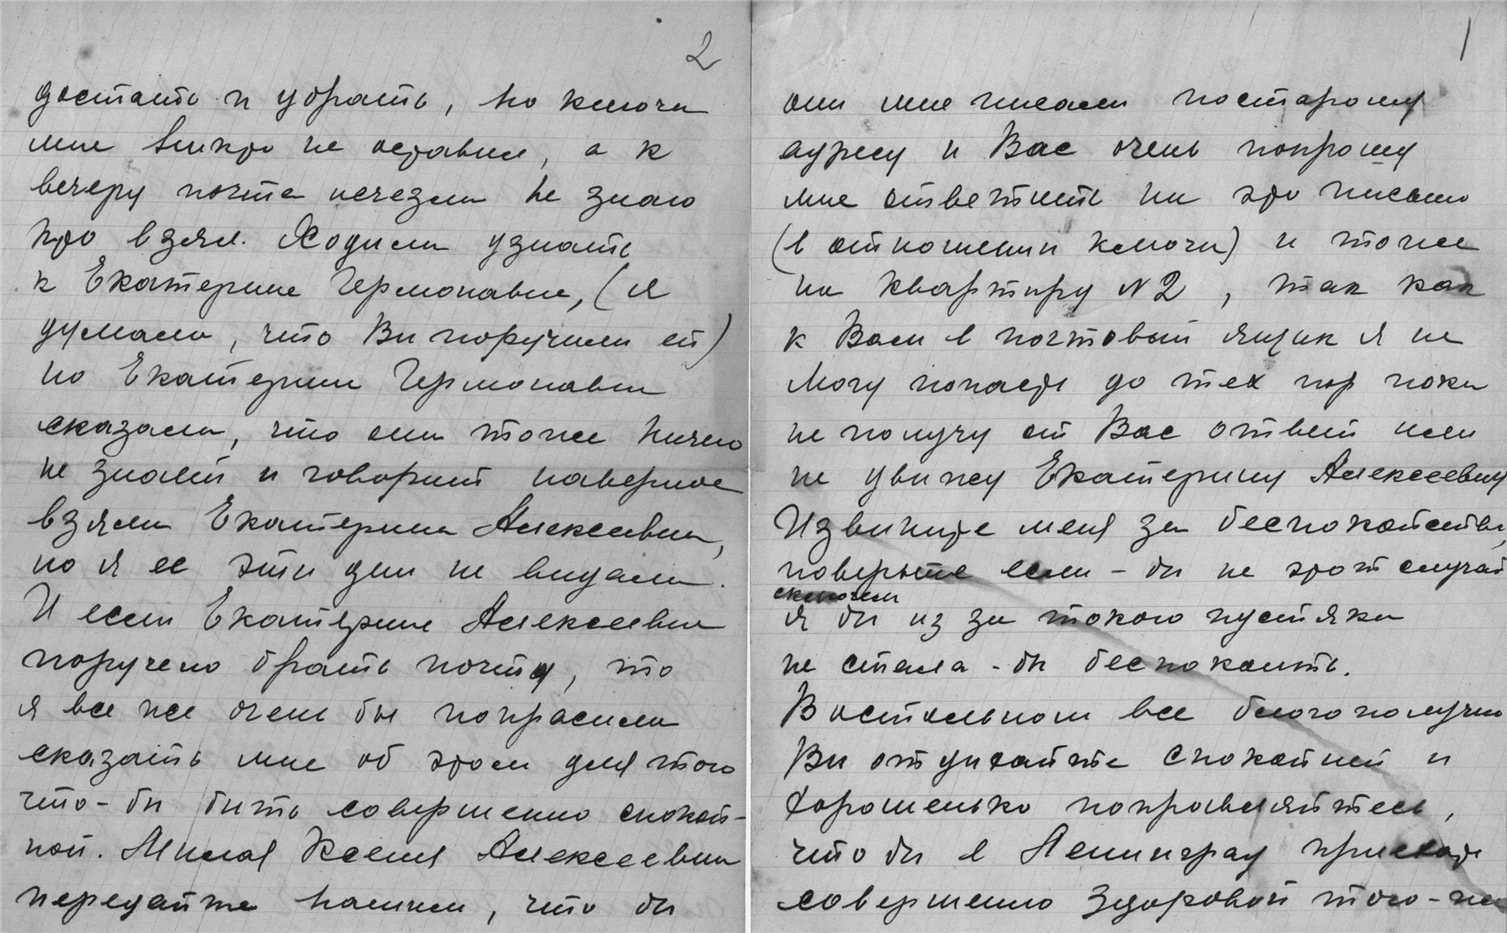 2
достать и убрать, но ключи
мне никто не оставил, а к
вечеру почта исчезла не знаю
кто взял. Ходила узнать
к Екатерине Германовне, (я
думала, что Вы поручили ей)
но Екатерина Германовна
сказала, что она тоже ничего
не знает и говорит наверное
взяла Екатерина Алексеевна,
но я ее эти дни не видала.
И если Екатерине Алексеевне
поручено брать почту, то
я все же очень бы попросила
сказать мне об этом для того
что-бы быть совершенно спокой-
ной. Милая Ксения Алексеевна
передайте нашим, что бы
1
они мне писали постарому
адресу и Вас очень попрошу
мне ответить на это письмо
(в отношении ключа) и тоже
на квартиру N 2, так как
к Вам в почтовый ящик я не
могу попасть до тех пор пока
не получу от Вас ответ или
не увижу Екатерину Алексеевну
Извините меня за беспокойство,
поверьте если-бы не этот случай
с ключем
я бы из за такого пустяка
не стала-бы беспокоить.
В остальном все благополучно
Вы отдыхайте спокойней и
хорошенько поправляйтесь,
что бы в Ленинград приехать
совершенно здоровой того-же